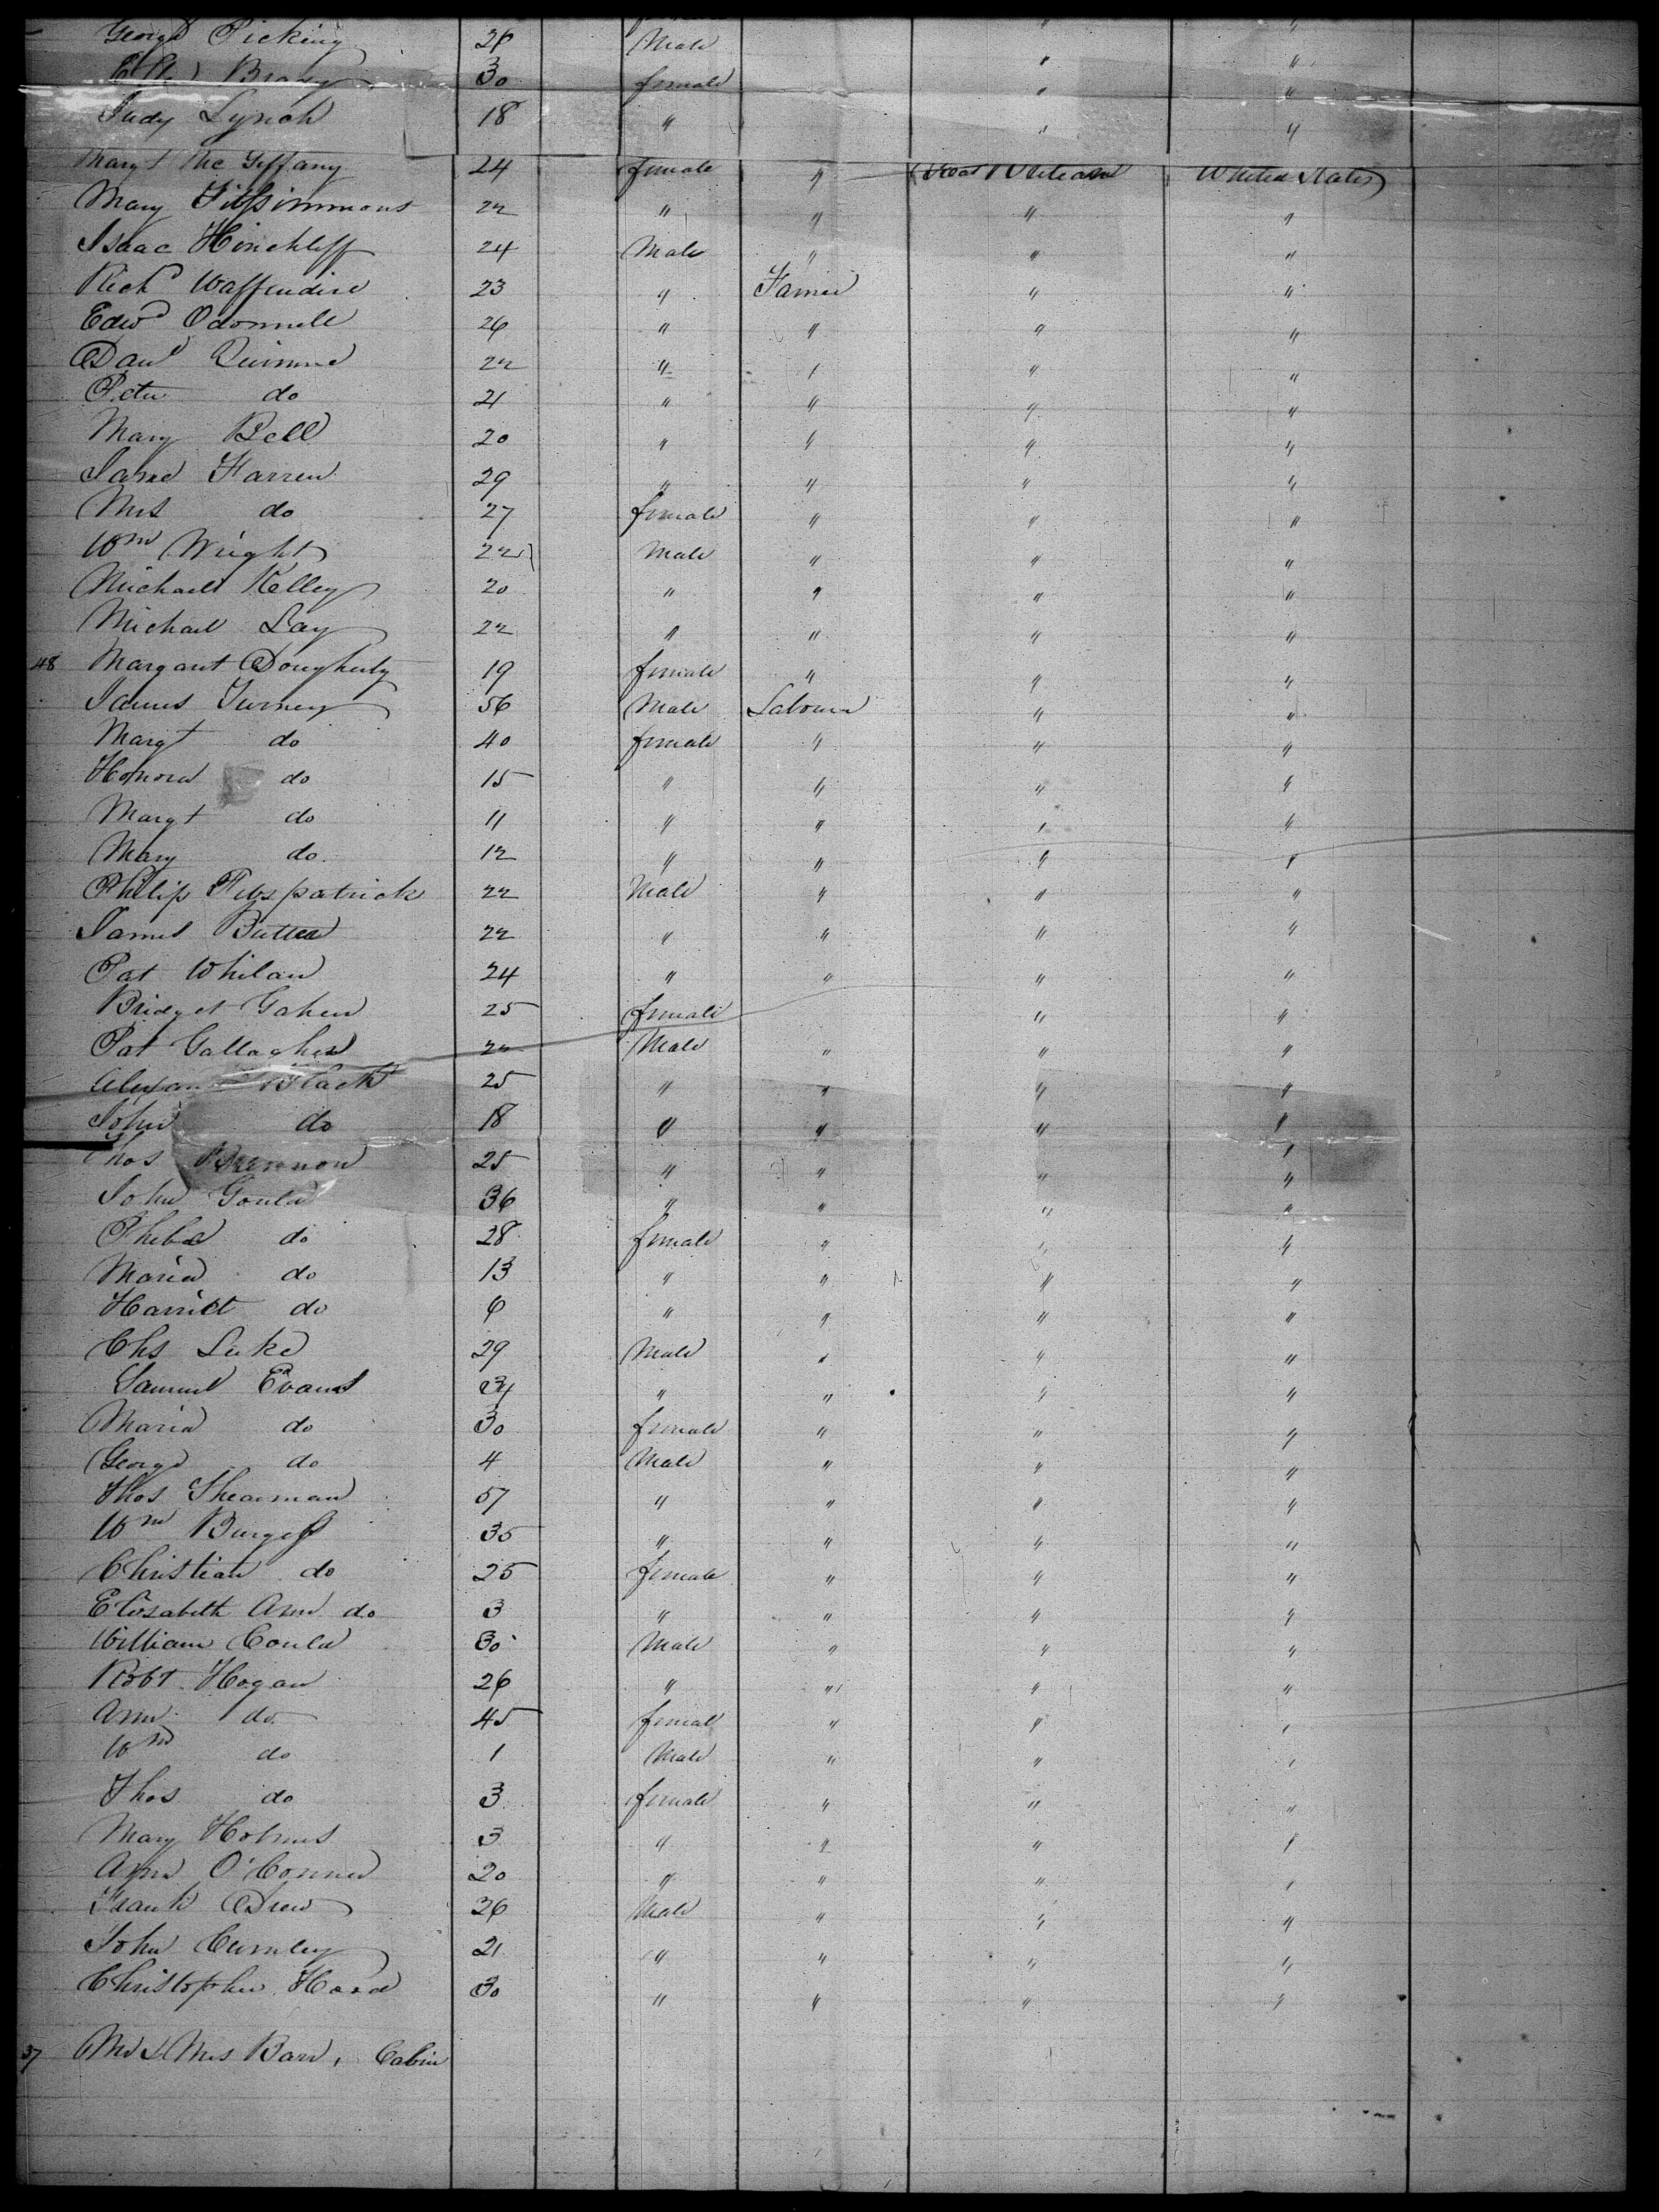 George Picking 26 Male " "
30 female " "
Judy Lynch 18 " " "
Margt Mc Giffany 24 female " Great Britain United States
Mary Fitssimmons 22 " " " "
Isaac Hinchliff 24 Male " " "
Richd Waffendire 23 " Farmer " "
Edwd Odonnell 26 " " " "
Danl 22 " " " "
Peter do 21 " " " "
Mary Bell 20 " " " "
James Farren 29 " " " "
Mrs do 27 female " " "
Wm Wright 22 Male " " "
Michael Kelley 20 " " " "
Michael Lay 22 " " " "
48 Margaret Dougherty 19 female " " "
James Furney 56 Male Labourer " "
Margt do 40 female " " "
Honora do 15 " " " "
Margt do 11 " " " "
Mary do 12 " " " "
Philip Fitspatrick 22 Male " " "
James Butler 22 " " " "
Pat Whelan 24 " " " "
Bridget Gahen 25 female " "
Pat Gallagher 22 Male " " "
Black 25 " " " "
John do 18 " " " "
Thos Brennon 25 " " " "
John Gould 36 " " " "
Phebe do 28 female " " "
Maria do 13 " " " "
Harriet do 6 " " " "
Chs Luke 29 Male " " "
Samuel Evans 34 " " " "
Maria do 30 female " " "
George do 4 Male " " "
Thos Shearman 57 " " " "
Wm Burgess 35 " " " "
Christian do 25 female " " "
Elisabeth Ann do 3 " " " "
William Gould 30 Male " " "
Robt Hogan 26 " " " "
Ann do 45 female " " "
Wm do 1 Male " " "
Thos do 3 female " " "
Mary Holmes 3 " " " "
Ann O'Conner 20 " " " "
Frank Drew 26 Male " " "
John Cumley 21 " " " "
Christopher Hood 30 " " " "
37 Mr & Mrs Barr, Cabin